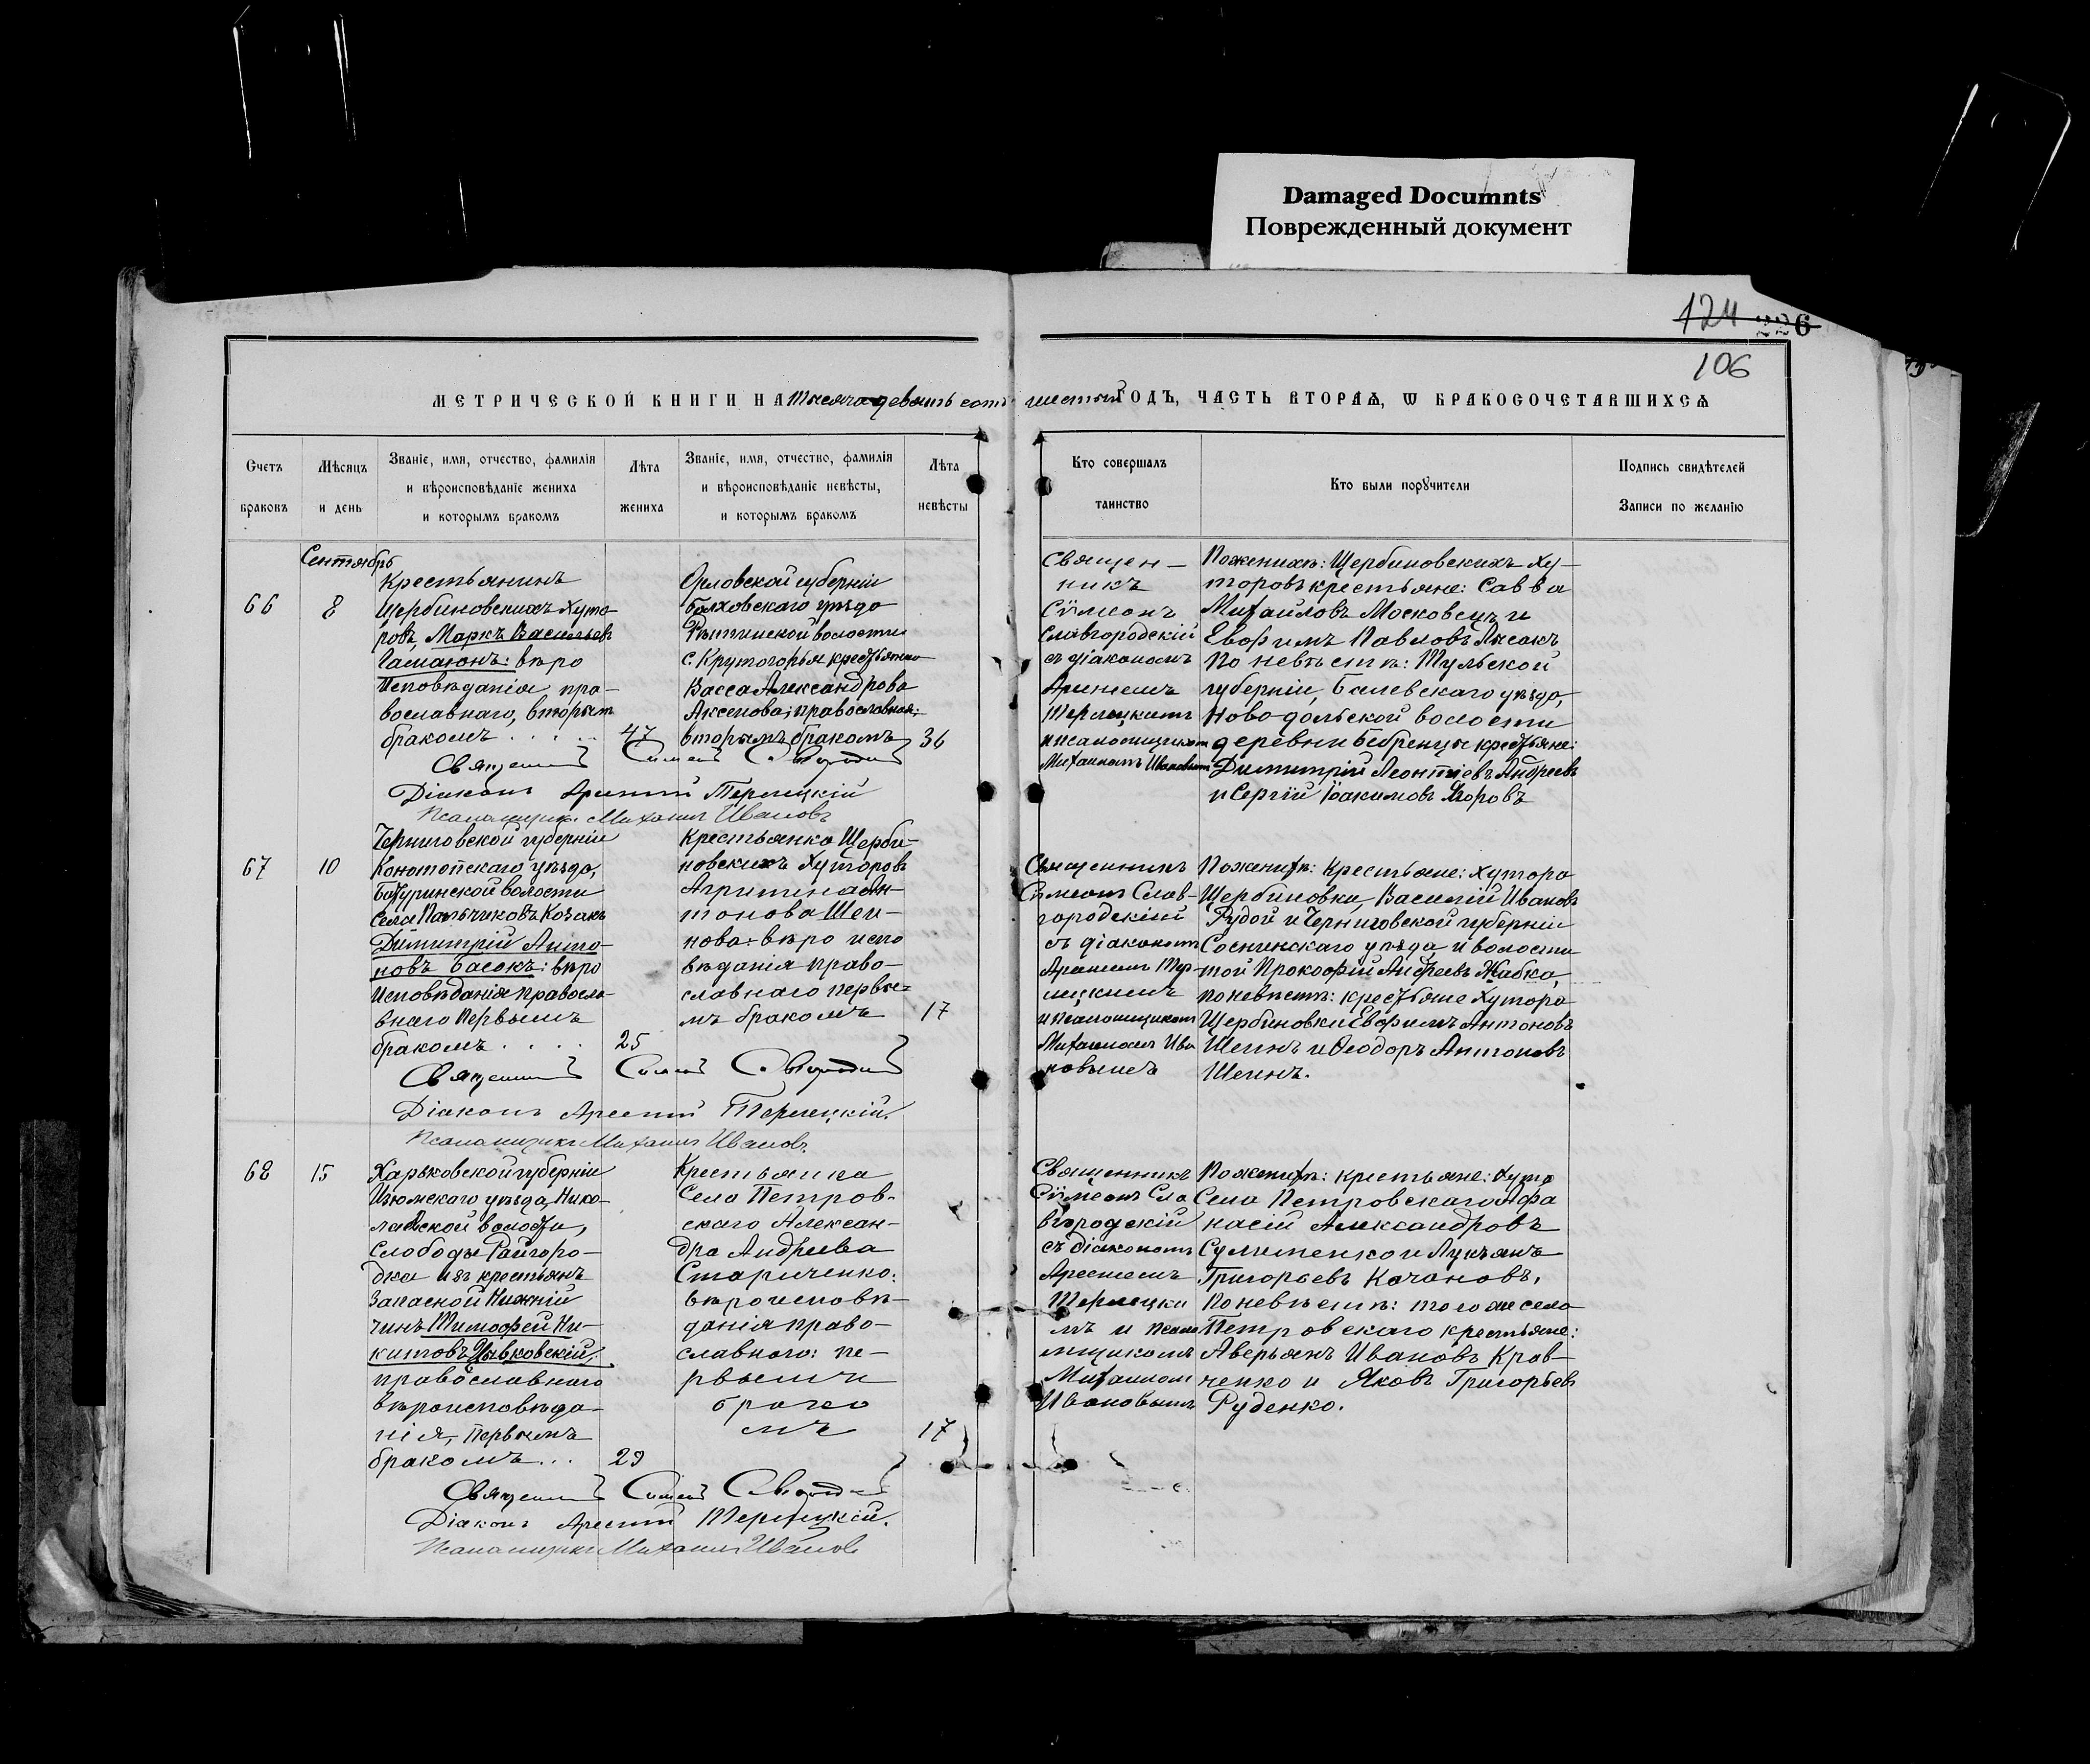 Damaged Documnts
Поврежденный документ
124 226
106
МЕТРИЧЕСКОЙ КНИГИ НА тысяча девятьсотъ шестый ГОДЪ, ЧАСТЬ ВТОРАѦ, Ѡ БРАКОСОЧЕТАВШИХСѦ
Счетъ браковъ
Мѣсяцъ и день
Званіе, имя, отчество, фамилія
и вѣроисповѣданіе жениха
и которымъ бракомъ
Лѣта жениха
Званіе, имя, отчество, фамилія
и вѣроисповѣданіе невѣсты,
и которымъ бракомъ
Лѣта невѣсты
Кто совершалъ
таинство
Кто были порꙋчители
Подпись свидѣтелей
Записи по желанію
Сентябрь
66
8
Крестьянинъ
Щербиновскихъ Хуто-
ровъ, Маркъ Васильевъ
Гамаюнъ: вѣро
Исповѣданія пра-
вославнаго, вторымъ
бракомъ . . . . .
47
Орловской губерніи
Болховскаго уѣзда
волости
с. Крутогорья крестьянка
Васса Александрова
Аксенова; православная;
вторымъ бракомъ
36
Священ-
никъ
Сѷмеонъ
Славгородскій
съ діакономъ
Арсеніемъ
Терлецкимъ
и псаломщикомъ
Михаиломъ Ивановымъ
По женихѣ: Щербиновскихъ Ху-
торовъ крестьяне: Савва
Михаиловъ Московецъ и
Евфимъ Павловъ Лысакъ
По невѣстѣ: Тульской
губерніи, Белевскаго уѣзда,
Новодольской волости
деревни Бобренцы крестьяне:
Димитрій Леонтіевъ Андреевъ
и Сергій Іоакимовъ Егоровъ
Священникъ Симеонъ Славгородскій
Діаконъ Арсеній Терлецкій
Псаломщикъ Михаилъ Ивановъ
67
10
Черниговской губерніи
Конотопскаго уѣзда,
Батуринской волости
села Пальчиковъ Козакъ
Димитрій Анто-
новъ Басокъ: вѣро
Исповѣданія правосла-
внаго Первымъ
бракомъ . . . .
25
Крестьянка Щерби-
новскихъ Хуторовъ
Агриппина Ан-
тонова Шеи-
нова: вѣро испо
вѣданія право-
славнаго первы-
мъ бракомъ
17
Священникъ
Сѵмеонъ Слав-
городскій
съ діакономъ
Арсеніемъ Тер-
лецкимъ
и псаломщикомъ
Михаиломъ Ива
новымъ
По женихѣ: Крестьяне: хутора
Щербиновки, Василій Ивановъ
Рудой и Черниговской губерніи
Сосницкаго уѣзда и волости
той Прокофій Андреевъ Жабка,
по невѣстѣ: крестьяне Хутора
Щербиновки Евфимъ Антоновъ
Шеинъ и Ѳеодоръ Антоновъ
Шеинъ.
Священникъ Симеонъ Славгородскій
Діаконъ Арсеній Терлецкій.
Псаломщикъ Михаилъ Ивановъ
68
15
Харьковской губерніи
Изюмскаго уѣзда, Нико-
лаевской волости,
Слободы Райгоро-
дка изъ крестьянъ
Запасной Нижній
чинъ Тимофей Ни-
китовъ Цывковскій;
православнаго
вѣроисповѣда-
нія, первымъ
бракомъ . . .
29
Крестьянка
Села Петров-
скаго Алексан-
дра Андреева
Стариченко:
вѣроисповѣ-
данія право-
славнаго: пе-
рвымъ
брако
мъ
17
Священникъ
Сѷмеонъ Сла
вгородскій
съ діакономъ
Арсеніемъ
Терлецки
мъ и псало
мщикомъ
Михаиломъ
Ивановымъ
По женихѣ: крестьяне: хуто
Села Петровскаго Афа
насій Александровъ
Сулименко и Лукъянъ
Григорьевъ Качановъ,
По невѣстѣ: того же села
Петровскаго крестьяне:
Аверьянъ Ивановъ Крав-
ченко и Яковъ Григорьевъ
Руденко.
Священникъ Симеонъ Славгородскій
Діаконъ Арсеній Терлецкій.
Псаломщикъ Михаилъ Ивановъ